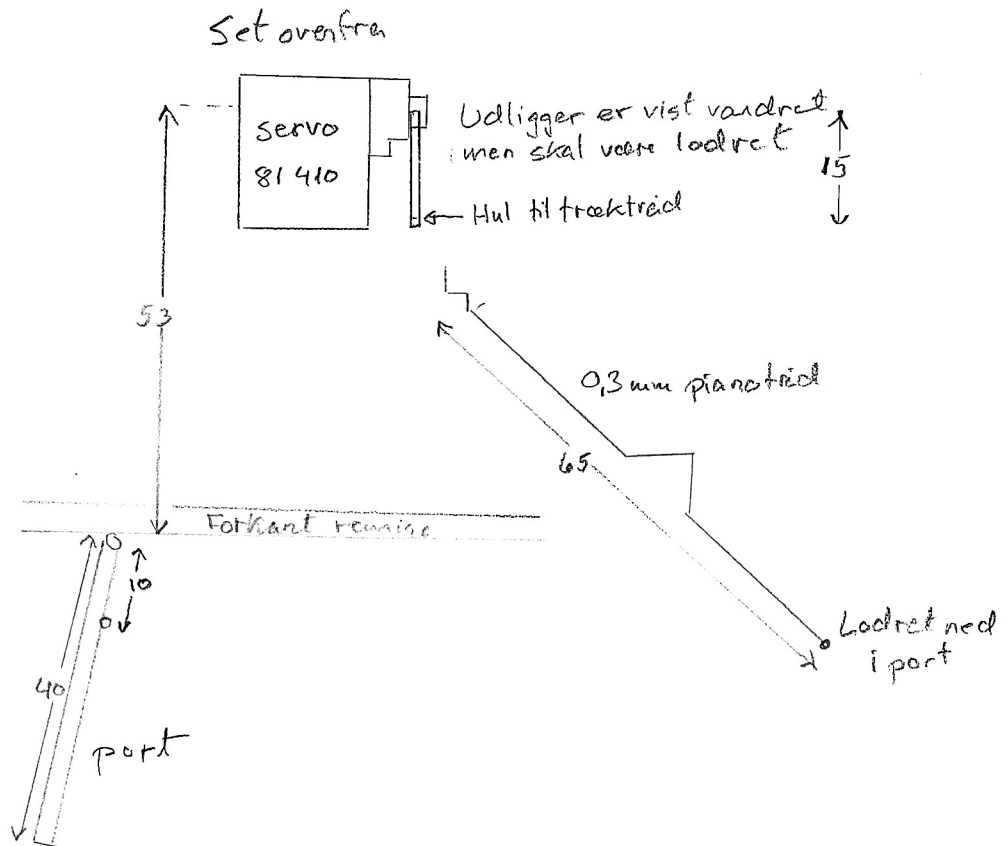 Set ovenfra
servo
81 410
Udligger er vist vandret
men skal være lodret
15
Hul til træktråd
53
0,3 mm pianotråd
65
Forkant remise
10
40
port
Lodret ned
i port